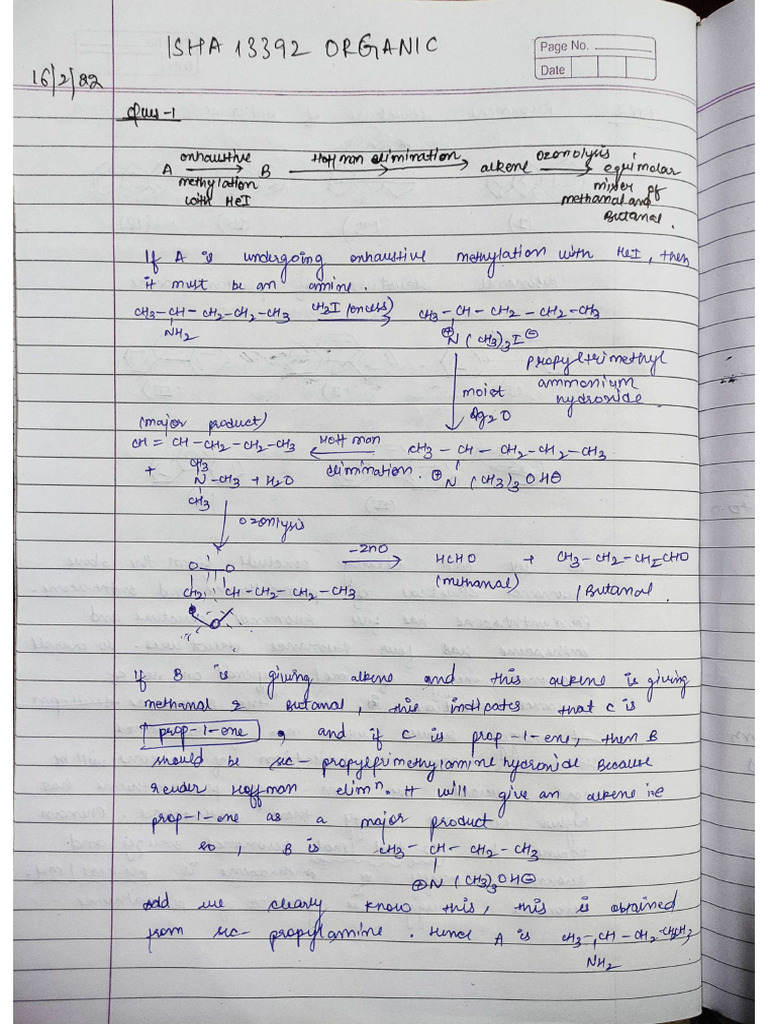 ISHA 13392 ORGANIC
Page No.
Date
16/2/22
Ques-1
A exhaustive methylation with MeI → B Hoffman elimination → alkene ozonolysis → equimolar
mixer of
methanal and
Butanal.
If A is undergoing exhaustive methylation with MeI, then
it must be an amine.
CH3-CH-CH2-CH2-CH3 CH3I (excess) → CH3-CH-CH2-CH2-CH3
NH2 ⊕N(CH3)3I⊖
propyltrimethyl
moist ammonium
Ag2O hydroxide
(major product)
CH=CH-CH2-CH2-CH3 ← Hoffman elimination. CH3-CH-CH2-CH2-CH3
⊕N(CH3)3OH⊖
+ CH3
N-CH3 + H2O
CH3
↓ ozonlysis
O O -ZnO → HCHO + CH3-CH2-CH2CHO
CH2 CH-CH2-CH2-CH3 (methanal) (Butanal.
O
If B is giving alkene and this alkene is giving
methanal & Butanal, this indicates that C is
prop-1-ene, and if C is prop-1-ene, then B
should be sec-propyltrimethylamine hydroxide Because
under Hoffman elimn. It will give an alkene ie
prop-1-ene as a major product
so, B is CH3-CH-CH2-CH3
⊕N(CH3)3OH⊖
add we clearly know this, this is obtained
from sec-propylamine. Hence A is CH3-CH-CH2-CH2CH3
NH2